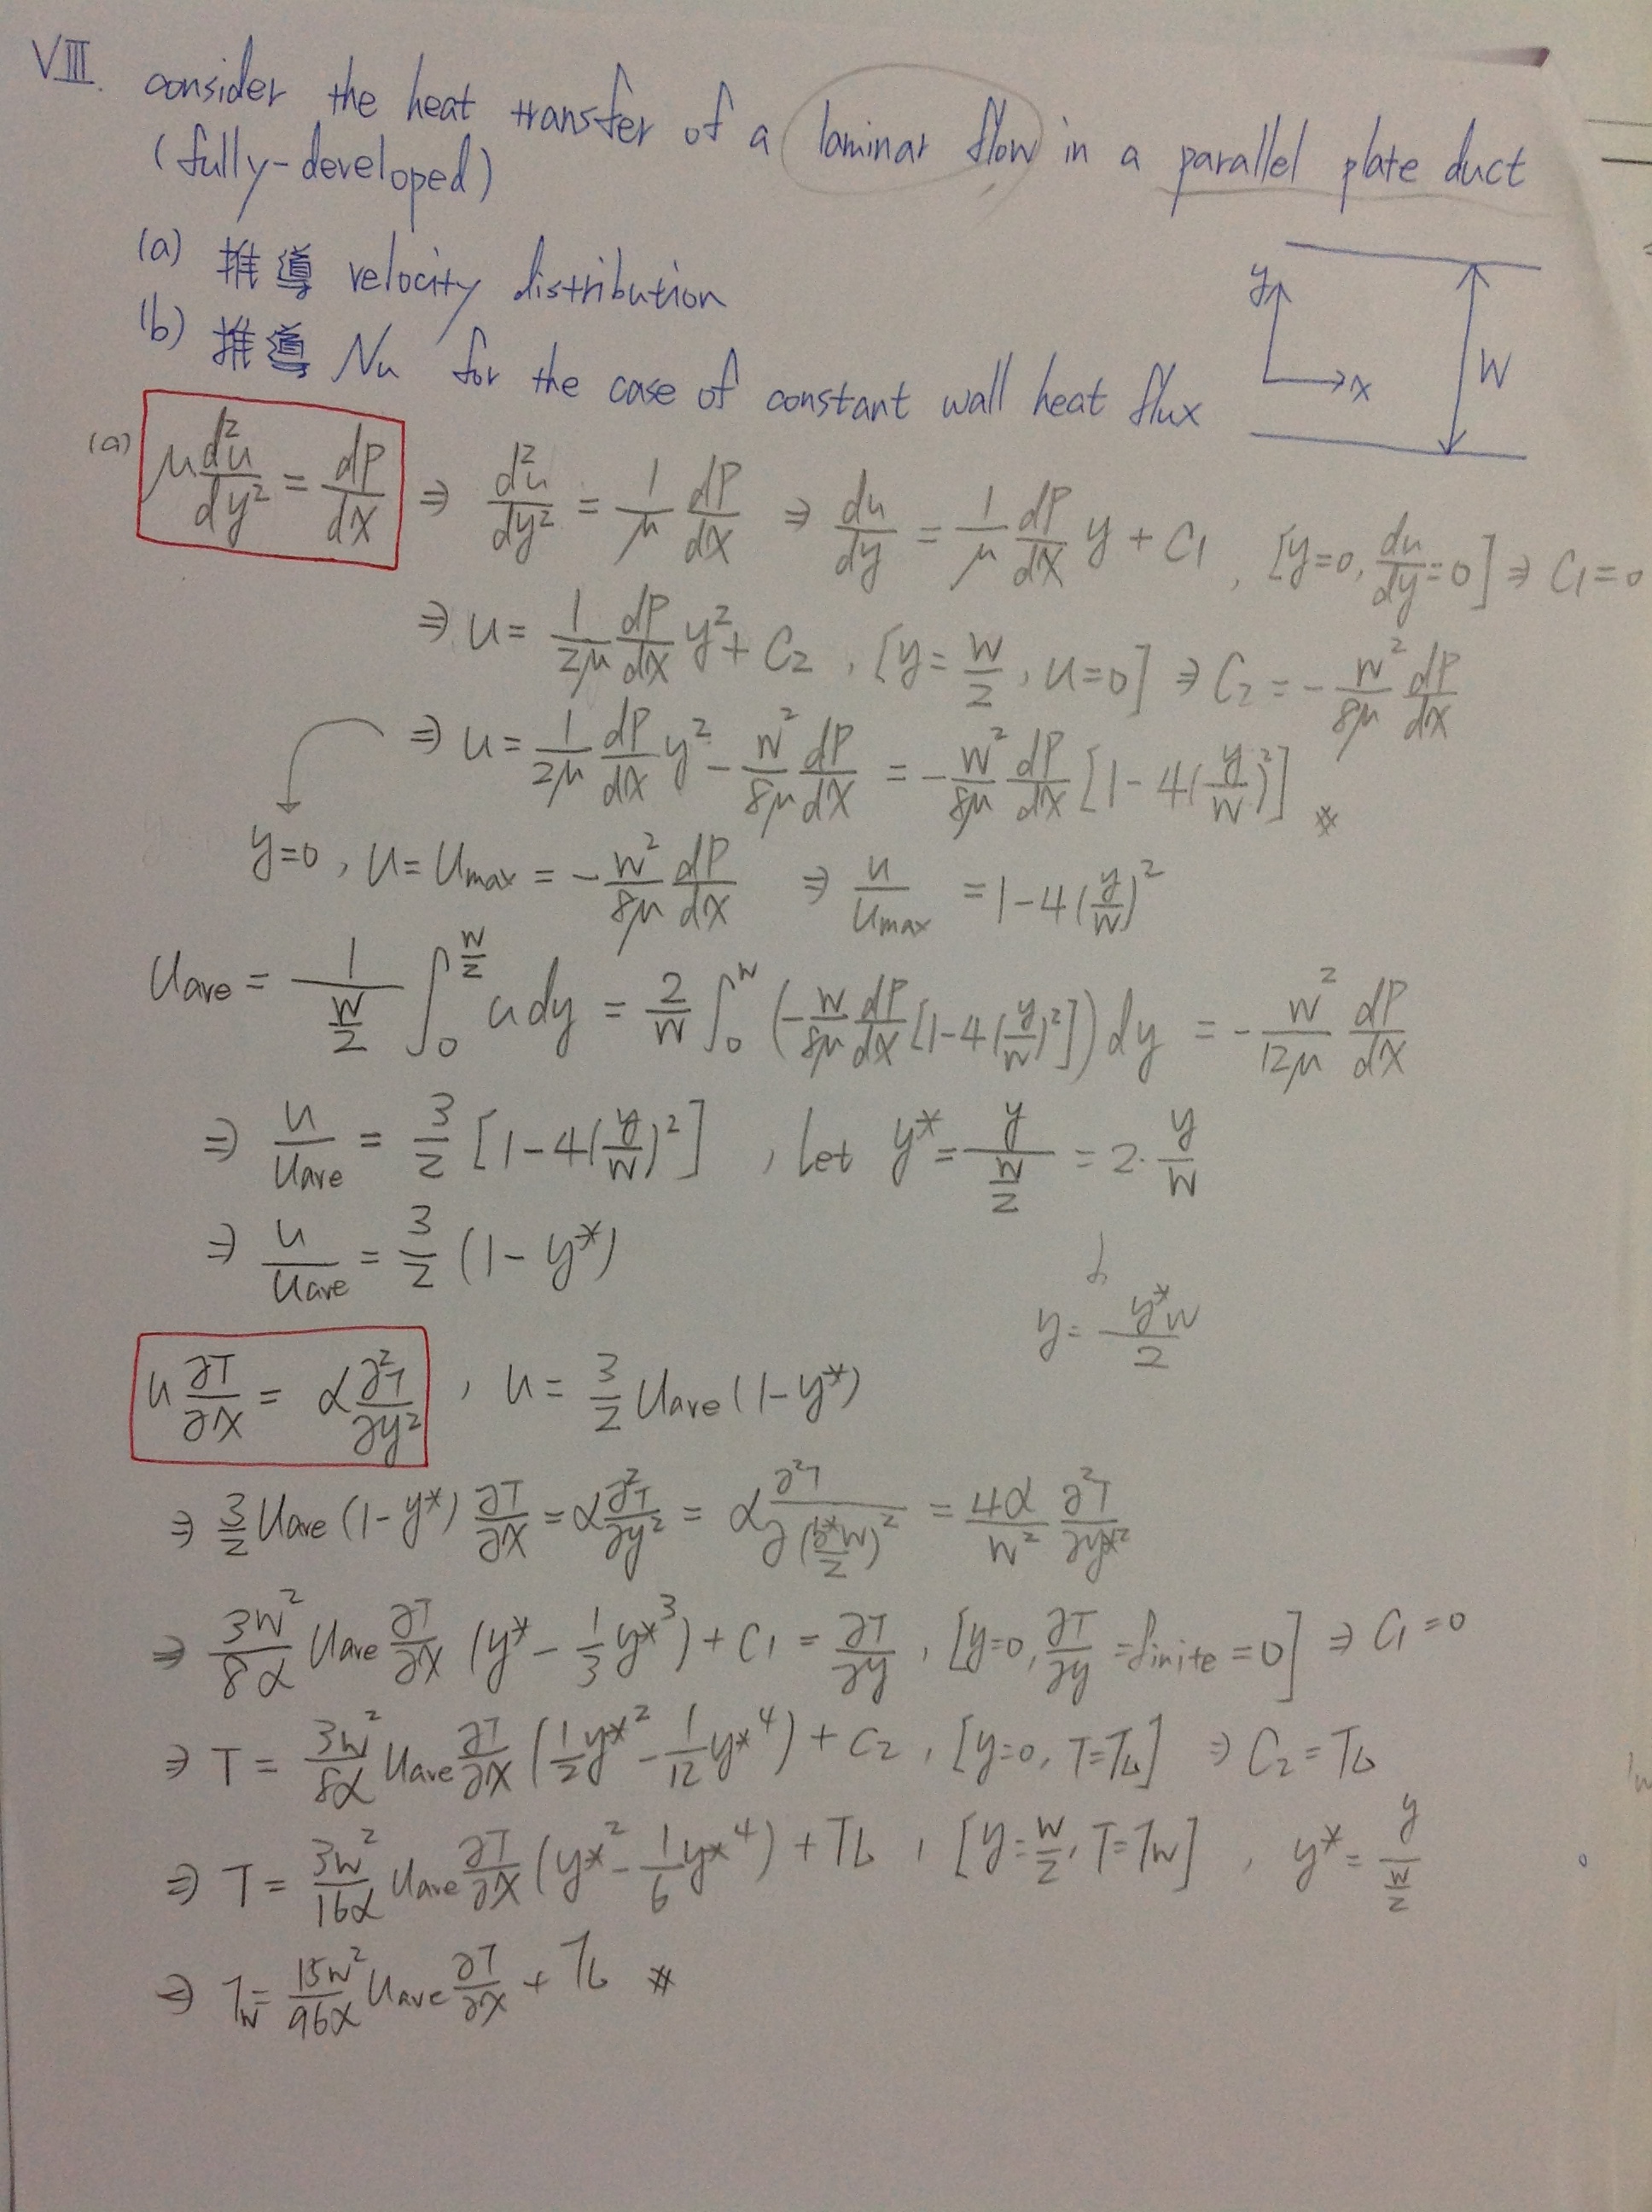 VIII. consider the heat transfer of a laminar flow in a parallel plate duct
(fully-developed)
(a) 推導 velocity distribution
(b) 推導 Nu for the case of constant wall heat flux
y
x
W
(a) μ d²u/dy² = dP/dx ⇒ d²u/dy² = 1/μ dP/dx ⇒ du/dy = 1/μ dP/dx y + C₁ , [y=0, du/dy=0] ⇒ C₁=0
⇒ u = 1/2μ dP/dx y² + C₂ , [y = W/2 , u=0] ⇒ C₂ = - W²/8μ dP/dx
⇒ u = 1/2μ dP/dx y² - W²/8μ dP/dx = - W²/8μ dP/dx [1-4(y/W)²] ※
y=0 , u = Umax = - W²/8μ dP/dx ⇒ u/Umax = 1-4(y/W)²
Uave = 1/(W/2) ∫₀^(W/2) u dy = 2/W ∫₀^W (- W/8μ dP/dx [1-4(y/W)²]) dy = - W²/12μ dP/dx
⇒ u/Uave = 3/2 [1-4(y/W)²] , Let y* = y/(W/2) = 2·y/W
⇒ u/Uave = 3/2 (1-y*)
y = y*W/2
u ∂T/∂x = α ∂²T/∂y² , u = 3/2 Uave (1-y*)
⇒ 3/2 Uave (1-y*) ∂T/∂x = α ∂²T/∂y² = α ∂²T/∂(y*W/2)² = 4α/W² ∂²T/∂y*²
⇒ 3W²/8α Uave ∂T/∂x (y* - 1/3 y*³) + C₁ = ∂T/∂y , [y=0, ∂T/∂y = finite = 0] ⇒ C₁=0
⇒ T = 3W²/8α Uave ∂T/∂x (1/2 y*² - 1/12 y*⁴) + C₂ , [y=0, T=Tb] ⇒ C₂ = Tb
⇒ T = 3W²/16α Uave ∂T/∂x (y*² - 1/6 y*⁴) + Tb , [y = W/2, T=Tw] , y* = y/(W/2)
⇒ Tw = 15W²/96α Uave ∂T/∂x + Tb ※